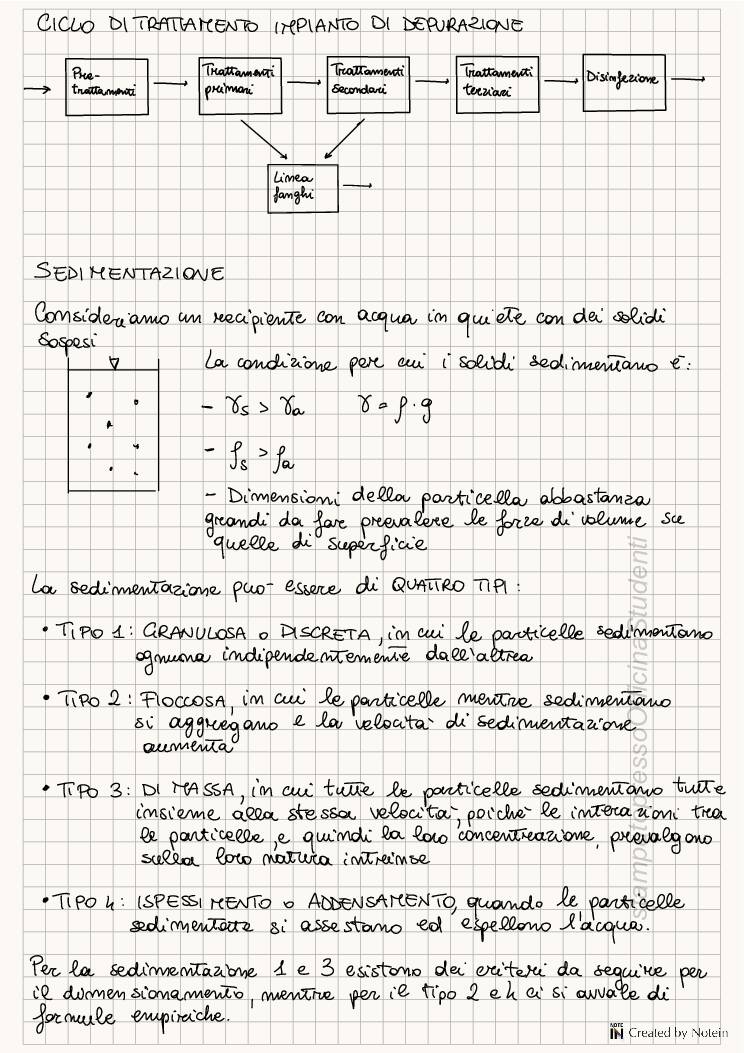 CICLO DI TRATTAMENTO IMPIANTO DI DEPURAZIONE
Pre-
trattamenti
Trattamenti
primari
Trattamenti
secondari
Trattamenti
terziari
Disinfezione
Linea
fanghi
SEDIMENTAZIONE
Consideriamo un recipiente con acqua in quiete con dei solidi
sospesi
La condizione per cui i solidi sedimentano è:
- γs > γa γ = ρ · g
- ρs > ρa
- Dimensioni della particella abbastanza
grandi da far prevalere le forze di volume su
quelle di superficie
La sedimentazione può essere di QUATTRO TIPI :
• TIPO 1 : GRANULOSA o DISCRETA, in cui le particelle sedimentano
ognuna indipendentemente dall'altra
• TIPO 2 : FIOCCOSA, in cui le particelle mentre sedimentano
si aggregano e la velocità di sedimentazione
aumenta
• TIPO 3 : DI MASSA, in cui tutte le particelle sedimentano tutte
insieme alla stessa velocità, poiché le interazioni tra
le particelle, e quindi la loro concentrazione, prevalgono
sulla loro natura intrinse
• TIPO 4 : ISPESSIMENTO o ADDENSAMENTO, quando le particelle
sedimentate si assestano ed espellono l'acqua.
Per la sedimentazione 1 e 3 esistono dei criteri da seguire per
il dimensionamento, mentre per il tipo 2 e 4 ci si avvale di
formule empiriche.
stampatopressoOfficinaStudenti
NOTE
IN Created by Notein